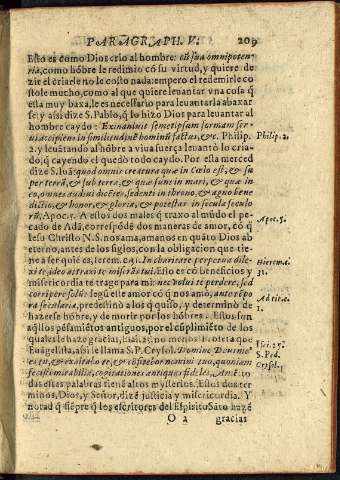 PARAGRAPH. V. 209
Esto es como Dios crio al hombre: en sua omnipoten-
ria, como hõbre le redimio cõ su virtud, y quiere de
zir el criarle no le costo nada: empero el redemirle co
stole mucho, como al que quiere leuantar vna cosa q̃
esta muy baxa, le es necessario para leuantarla abaxar
se: y assi dize S. Pablo, q̃ lo hizo Dios para leuantar al
hombre caydo: Exinaniuit semetipsum formam ser-
ui accipiens in similitudinẽ hominũ factus, &c. Philip.
2. y leuãtando al hõbre a viua fuerça leuantò lo cria-
do, q̃ cayendo el quedò todo caydo. Por esta merced
dize S. Iuã: quod omnis creatura quæ in Cœlo est, & su
per terrã, & sub terra, & quæ sunt in mari, & quæ in
eo, omnes audiui dicẽtes, sedenti in throno, & agno bene
dictio, & honor, & gloria, & potestas in secula seculo
rũ, Apoc. 5. A estos dos males q̃ traxo al mũdo el pe-
cado de Adã, correspõdẽ dos maneras de amor, cõ q̃
Iesu Christo N. S. nos ama, amanos en quãto Dios ab
eterno, antes de los siglos, con la obligacion que tie-
ne a ser quiẽ es, Ierem. c. 31. In charitate perpetua dile-
xi te, ideo attraxi te miserãs tui. Esto es cõ beneficios y
misericordia te trage para mi:
Iesus este amor cõ q̃ nos amò, ante tẽpo
ra secularia, predestinò a los q̃ quiso, y determinò de
hazerse hõbre, y de morir por los hõbres. Estos son
aq̃llos pẽsamiẽtos antiguos, por el cũplimiẽto de los
quales le haze gracias, Isai. 25. no menos Profeta que
Euãgelista, assi le llama S. P. Crysol. Domine Deus meus
es tu, & exaltabo te, & cõfitebor nomini tuo, quoniam
fecisti mirabilia, cogitationes antiquas fideles. Amẽ. to
das estas palabras tienẽ altos mysterios. Estos dos ter
minos, Dios, y Señor, dizẽ justicia y misericordia. Y
notad q̃ siẽpre q̃ los escritores del Espiritu Sãto hazẽ
O 2 gracias
Philip. 2.
Apoc. 5.
Hierem. c.
31.
Ad tit. c.
1.
Isai. 25.
S. Ped.
Crysol.